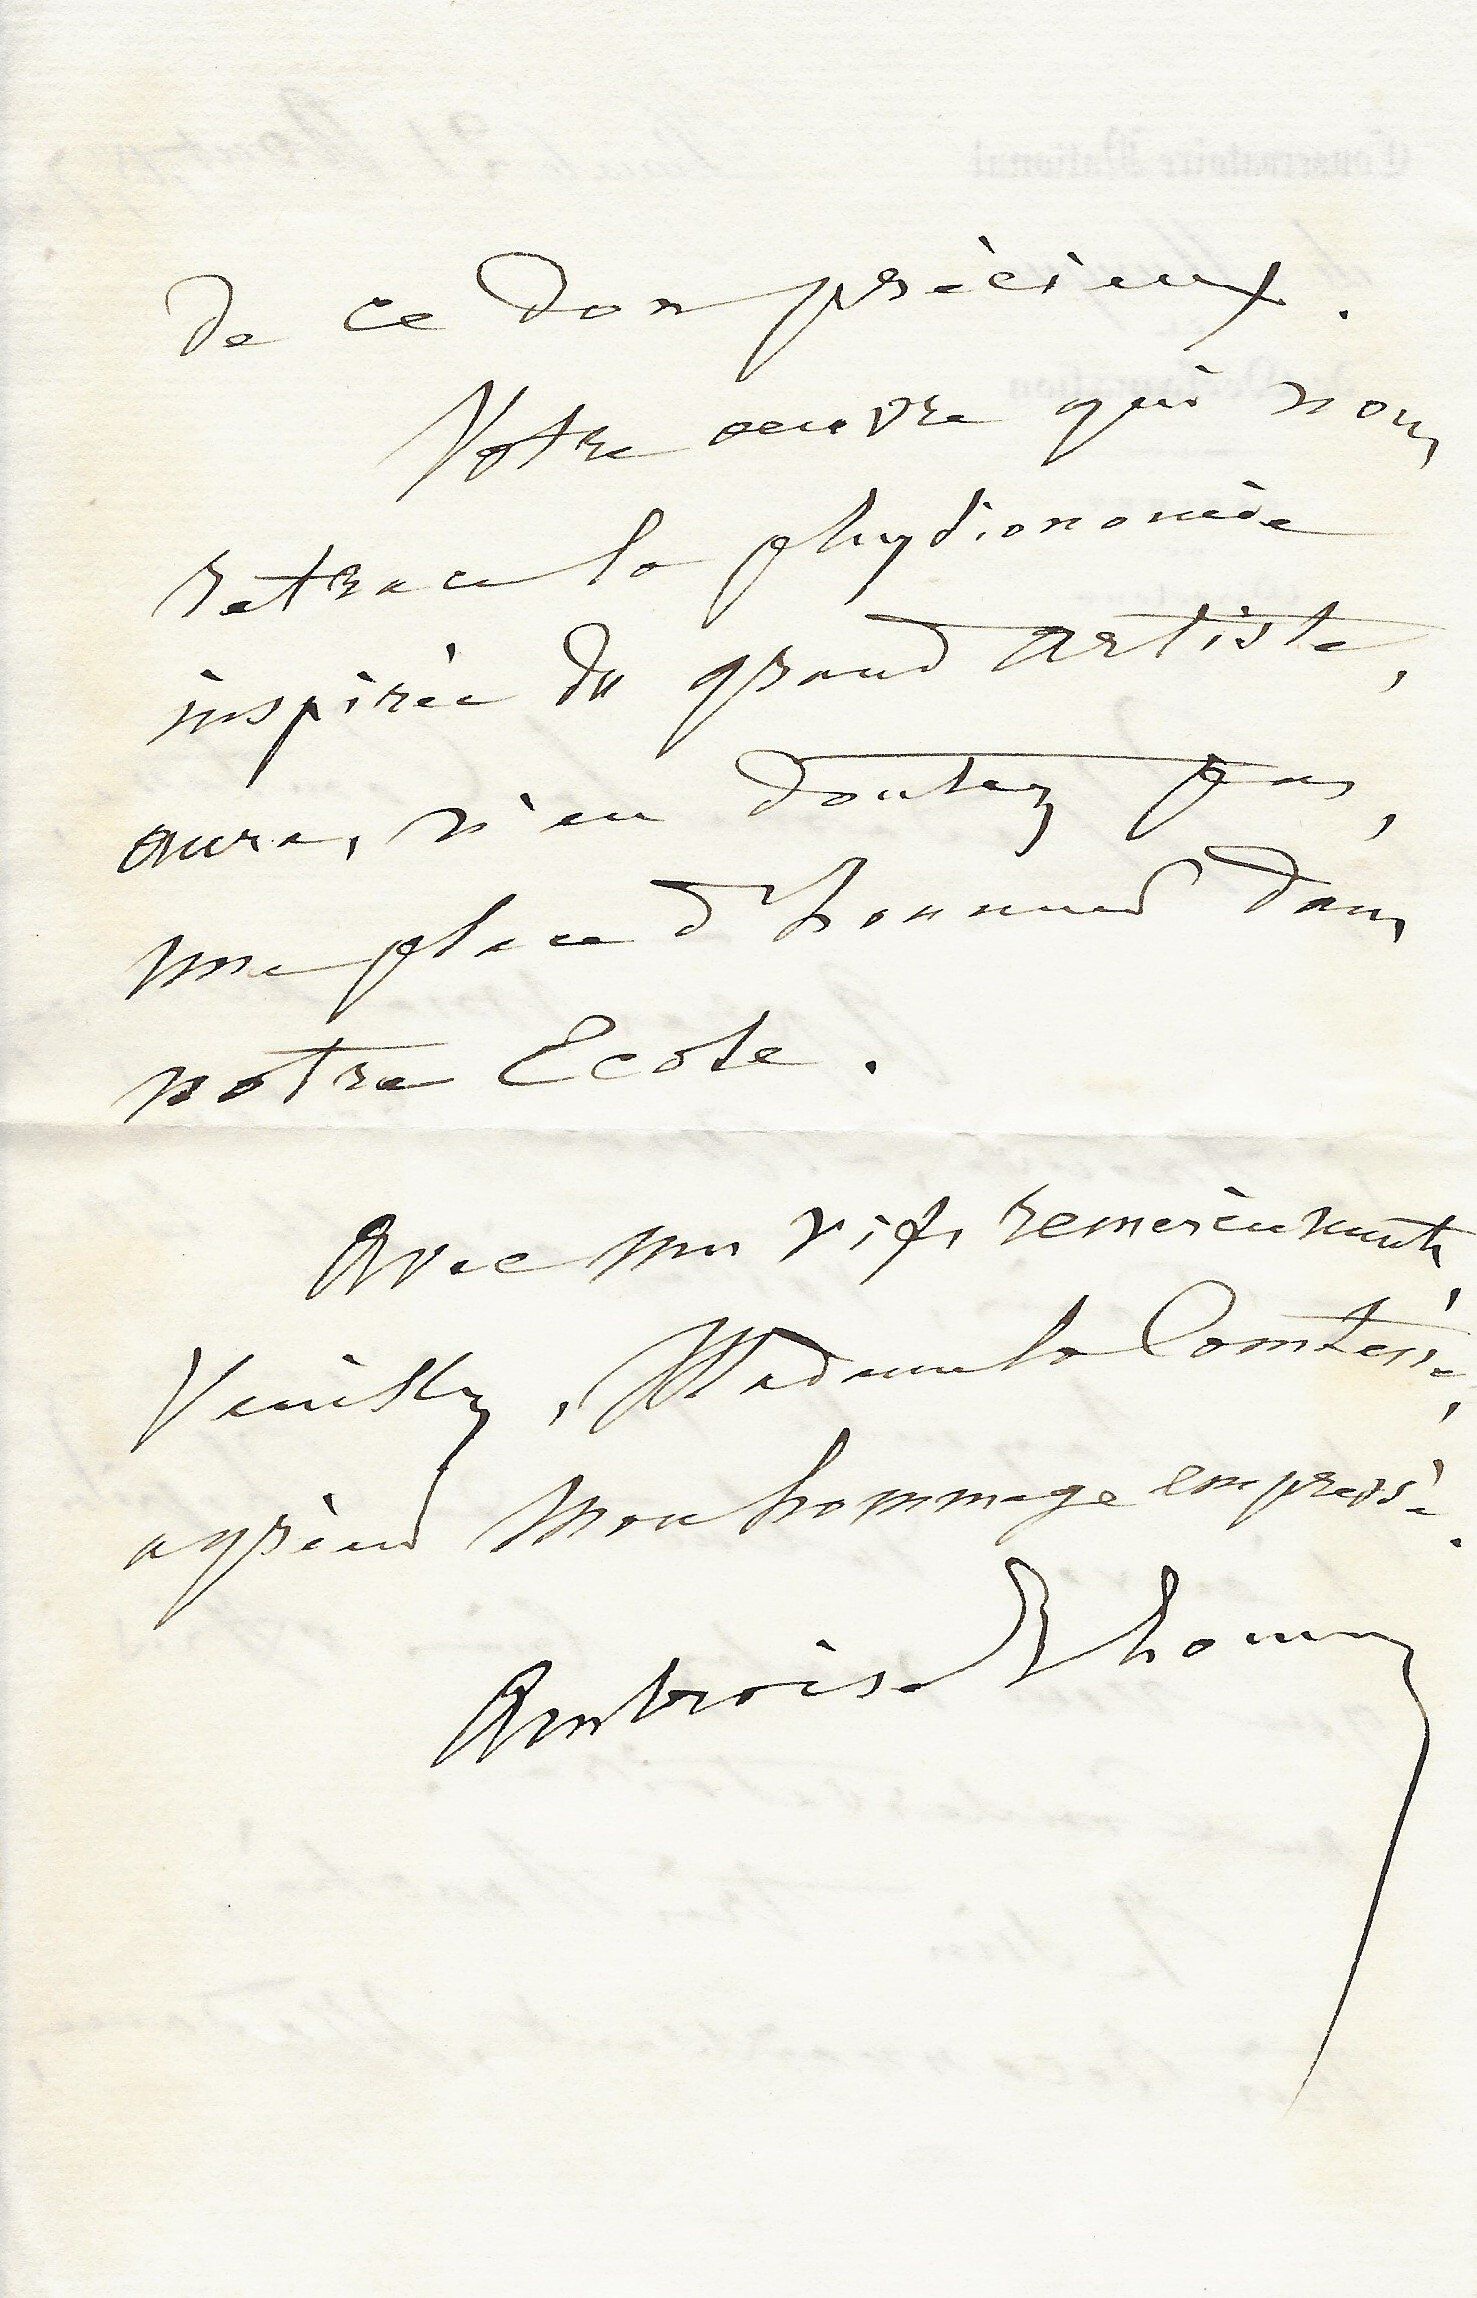 de ce don précieux.
Votre oeuvre qui nous
retrace la physionomie
inspirée du grand artiste,
aura, n'en doutez pas,
une place d'honneur dans
notre Ecole.
Avec mes vifs remerciements,
Veuillez, Madame la Comtesse,
agréer mon hommage empressé.
Ambroise Thomas